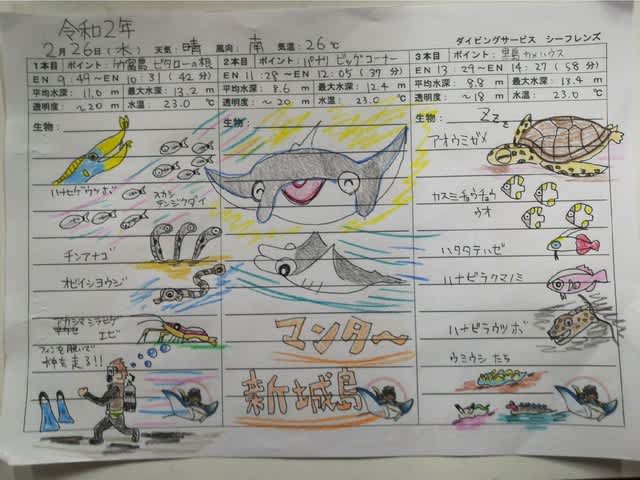 令和2年
2月26日(水) 天気:晴 風向:南 気温:26℃ ダイビングサービス シーフレンズ
1本目 ポイント:竹富島 ビタローの根
EN 9:49~EN 10:31(42分)
平均水深:11.0m 最大水深:13.2m
透明度:~20m 水温:23.0℃
生物:
ハナヒゲウツボ
スカシテンジクダイ
チンアナゴ
オビイシヨウジ
アカシマシラヒゲエビ
フィンを脱いで
沖を走る!!
2本目 ポイント:パナリ ビッグコーナー
EN 11:28~EN 12:05(37分)
平均水深:8.6m 最大水深:12.4m
透明度:~20m 水温:23.0℃
生物:
マンタ~
新城島
3本目 ポイント:黒島 カメハウス
EN 13:29~EN 14:27(58分)
平均水深:8.8m 最大水深:13.4m
透明度:~18m 水温:23.0℃
生物: Zzz
アオウミガメ
カスミチョウチョウ
ウオ
ハタタテハゼ
ハナビラクマノミ
ハナビラウツボ
ウミウシたち